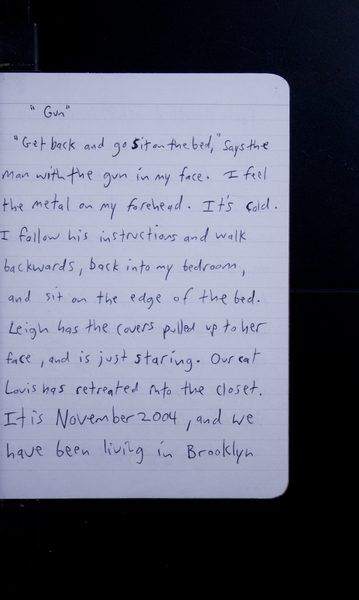 "Gun"
"Get back and go sit on the bed," says the
man with the gun in my face. I feel
the metal on my forehead. It's cold.
I follow his instructions and walk
backwards, back into my bedroom,
and sit on the edge of the bed.
Leigh has the covers pulled up to her
face, and is just staring. Our cat
Louis has retreated into the closet.
It is November 2004, and we
have been living in Brooklyn